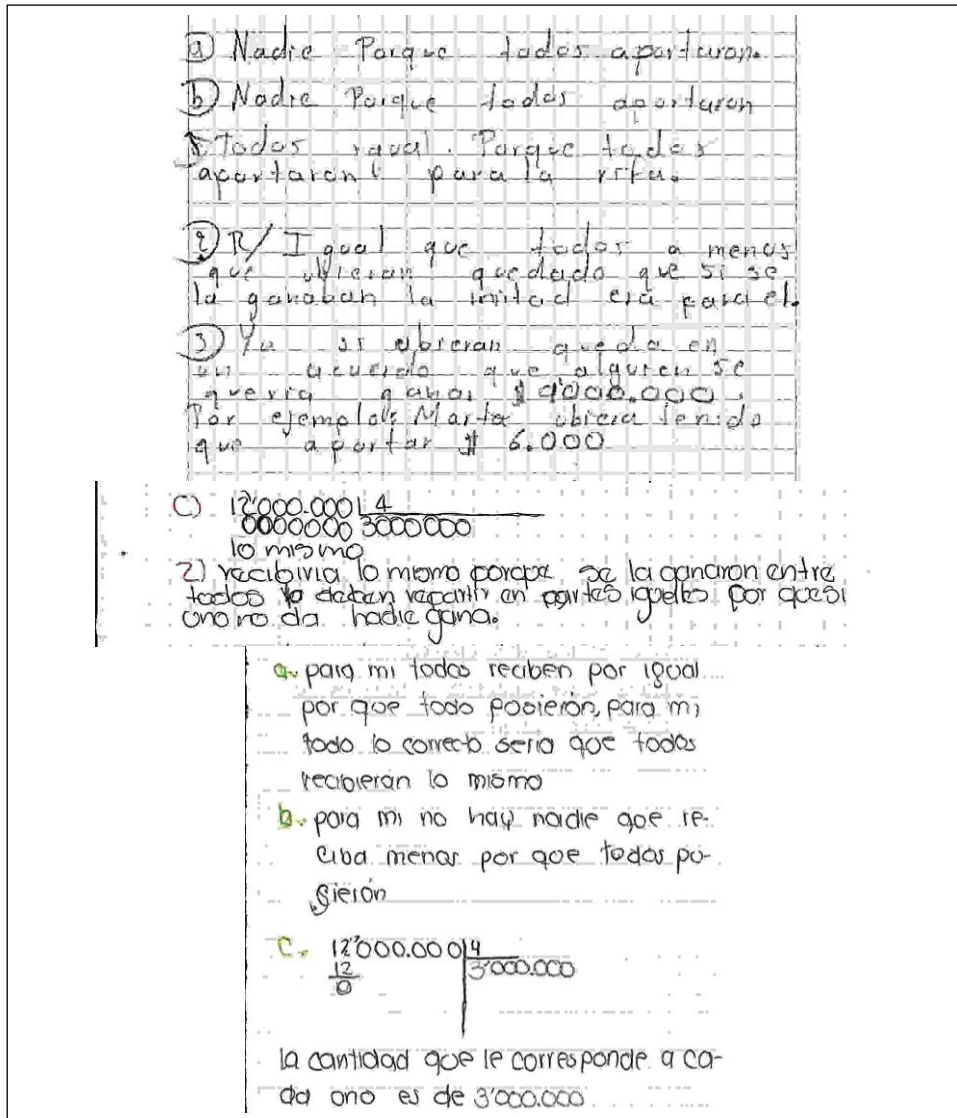 a) Nadie Porque todos aportaron.
b) Nadie Porque todos aportaron
Todos igual. Porque todos
aportaron para la rifa.
2) R/ Igual que todos a menos
que ubieran quedado que si se
la ganaban la mitad era para el.
3) Ya si ubieran queda en
un acuerdo que alguien se
queria ganar $ 9'000.000.
Por ejemplo: Marta ubiera tenido
que aportar $ 6.000
C) 12'000.000 4
0000000 3000000
lo mismo
2) recibiria lo mismo porque se la ganaron entre
todos lo deben repartir en partes iguales por que si
uno no da nadie gana.
a. para mi todos reciben por igual
por que todo pusierón, para mi
todo lo correcto seria que todos
recibieran lo mismo
b. para mi no hay nadie que re-
ciba menos por que todos pu-
sierón
C. 12'000.000 4
12 3'000.000
0
la cantidad que le corresponde a ca-
da uno es de 3'000.000